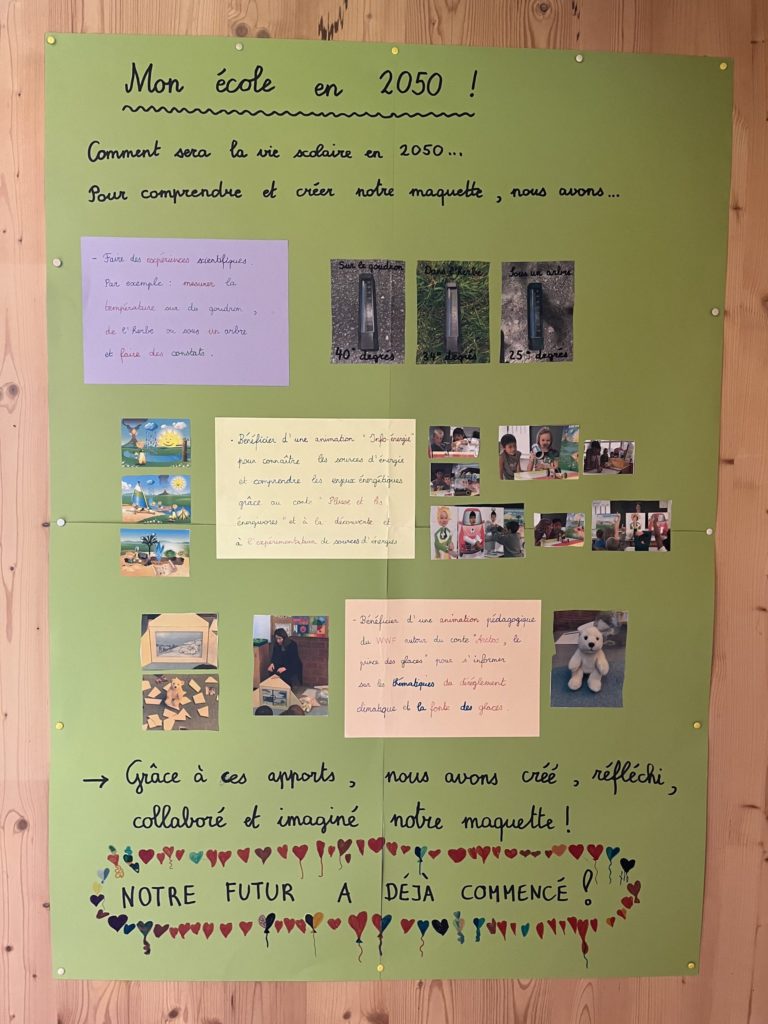 Mon école en 2050 !
Comment sera la vie scolaire en 2050...
Pour comprendre et créer notre maquette, nous avons...
- Faire des expériences scientifiques.
Par exemple : mesurer la
température sur du goudron,
de l'herbe ou sous un arbre
et faire des constats.
Sur le goudron
40° degrés
Dans l'herbe
34° degrés
Sous un arbre
25° degrés
- Bénéficier d'une animation "Info-énergie"
pour connaître les sources d'énergie
et comprendre les enjeux énergétiques
grâce au conte " et les
énergivores" et à la découverte et
à l'expérimentation de sources d'énergies
- Bénéficier d'une animation pédagogique
du WWF autour du conte "Arctos, le
prince des glaces" pour s'informer
sur les thématiques du dérèglement
climatique et la fonte des glaces.
→ Grâce à ces apports, nous avons créé, réfléchi,
collaboré et imaginé notre maquette !
NOTRE FUTUR A DÉJÀ COMMENCÉ !